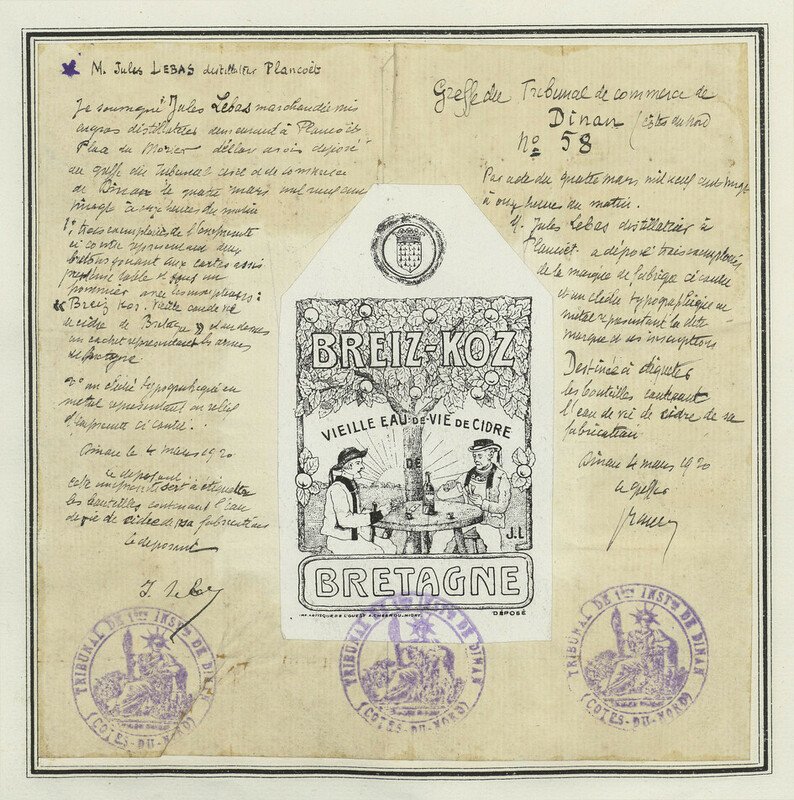 M. Jules LEBAS distillateur Plancoët
Je soussigné Jules Lebas marchand en
gros distillateur demeurant à Plancoët
déclare avoir déposé
au greffe du Tribunal civil de commerce
de Dinan le quatre mars mil neuf cent
vingt à onze heures du matin
1° trois exemplaires de l'empreinte
ci contre representant deux
bretons jouant aux cartes assis
table sous un
pommier avec les inscriptions:
« Breiz Koz. Vieille eau de vie
de cidre de Bretagne » et au dessus
un cachet representant les armes
de Bretagne
2° un cliché typographique en
metal representant en relief
l'empreinte ci contre.
Dinan le 4 mars 1920
le deposant
cette empreinte sert à étiqueter
les bouteilles contenant l'eau
de vie de cidre de sa fabrication
le deposant
J. Lebas
Greffe du Tribunal de commerce de
Dinan (Côtes du Nord)
No 58
Par acte du quatre mars mil neuf cent vingt
à onze heures du matin.
M. Jules Lebas distillateur à
Plancoët. a déposé trois exemplaires
de la marque de fabrique ci contre
et un cliché typographique en
metal representant la dite
marque et ses inscriptions
Destinée à étiqueter
les bouteilles contenant
l'eau de vie de cidre de sa
fabrication
Dinan 4 mars 1920
le greffier
BREIZ-KOZ
VIEILLE EAU-DE-VIE DE CIDRE
DE
J.L
BRETAGNE
DÉPOSÉ
TRIBUNAL DE 1ère INSTce DE DINAN
(CÔTES-DU-NORD)
TRIBUNAL DE 1ère INSTce DE DINAN
(CÔTES-DU-NORD)
TRIBUNAL DE 1ère INSTce DE DINAN
(CÔTES-DU-NORD)